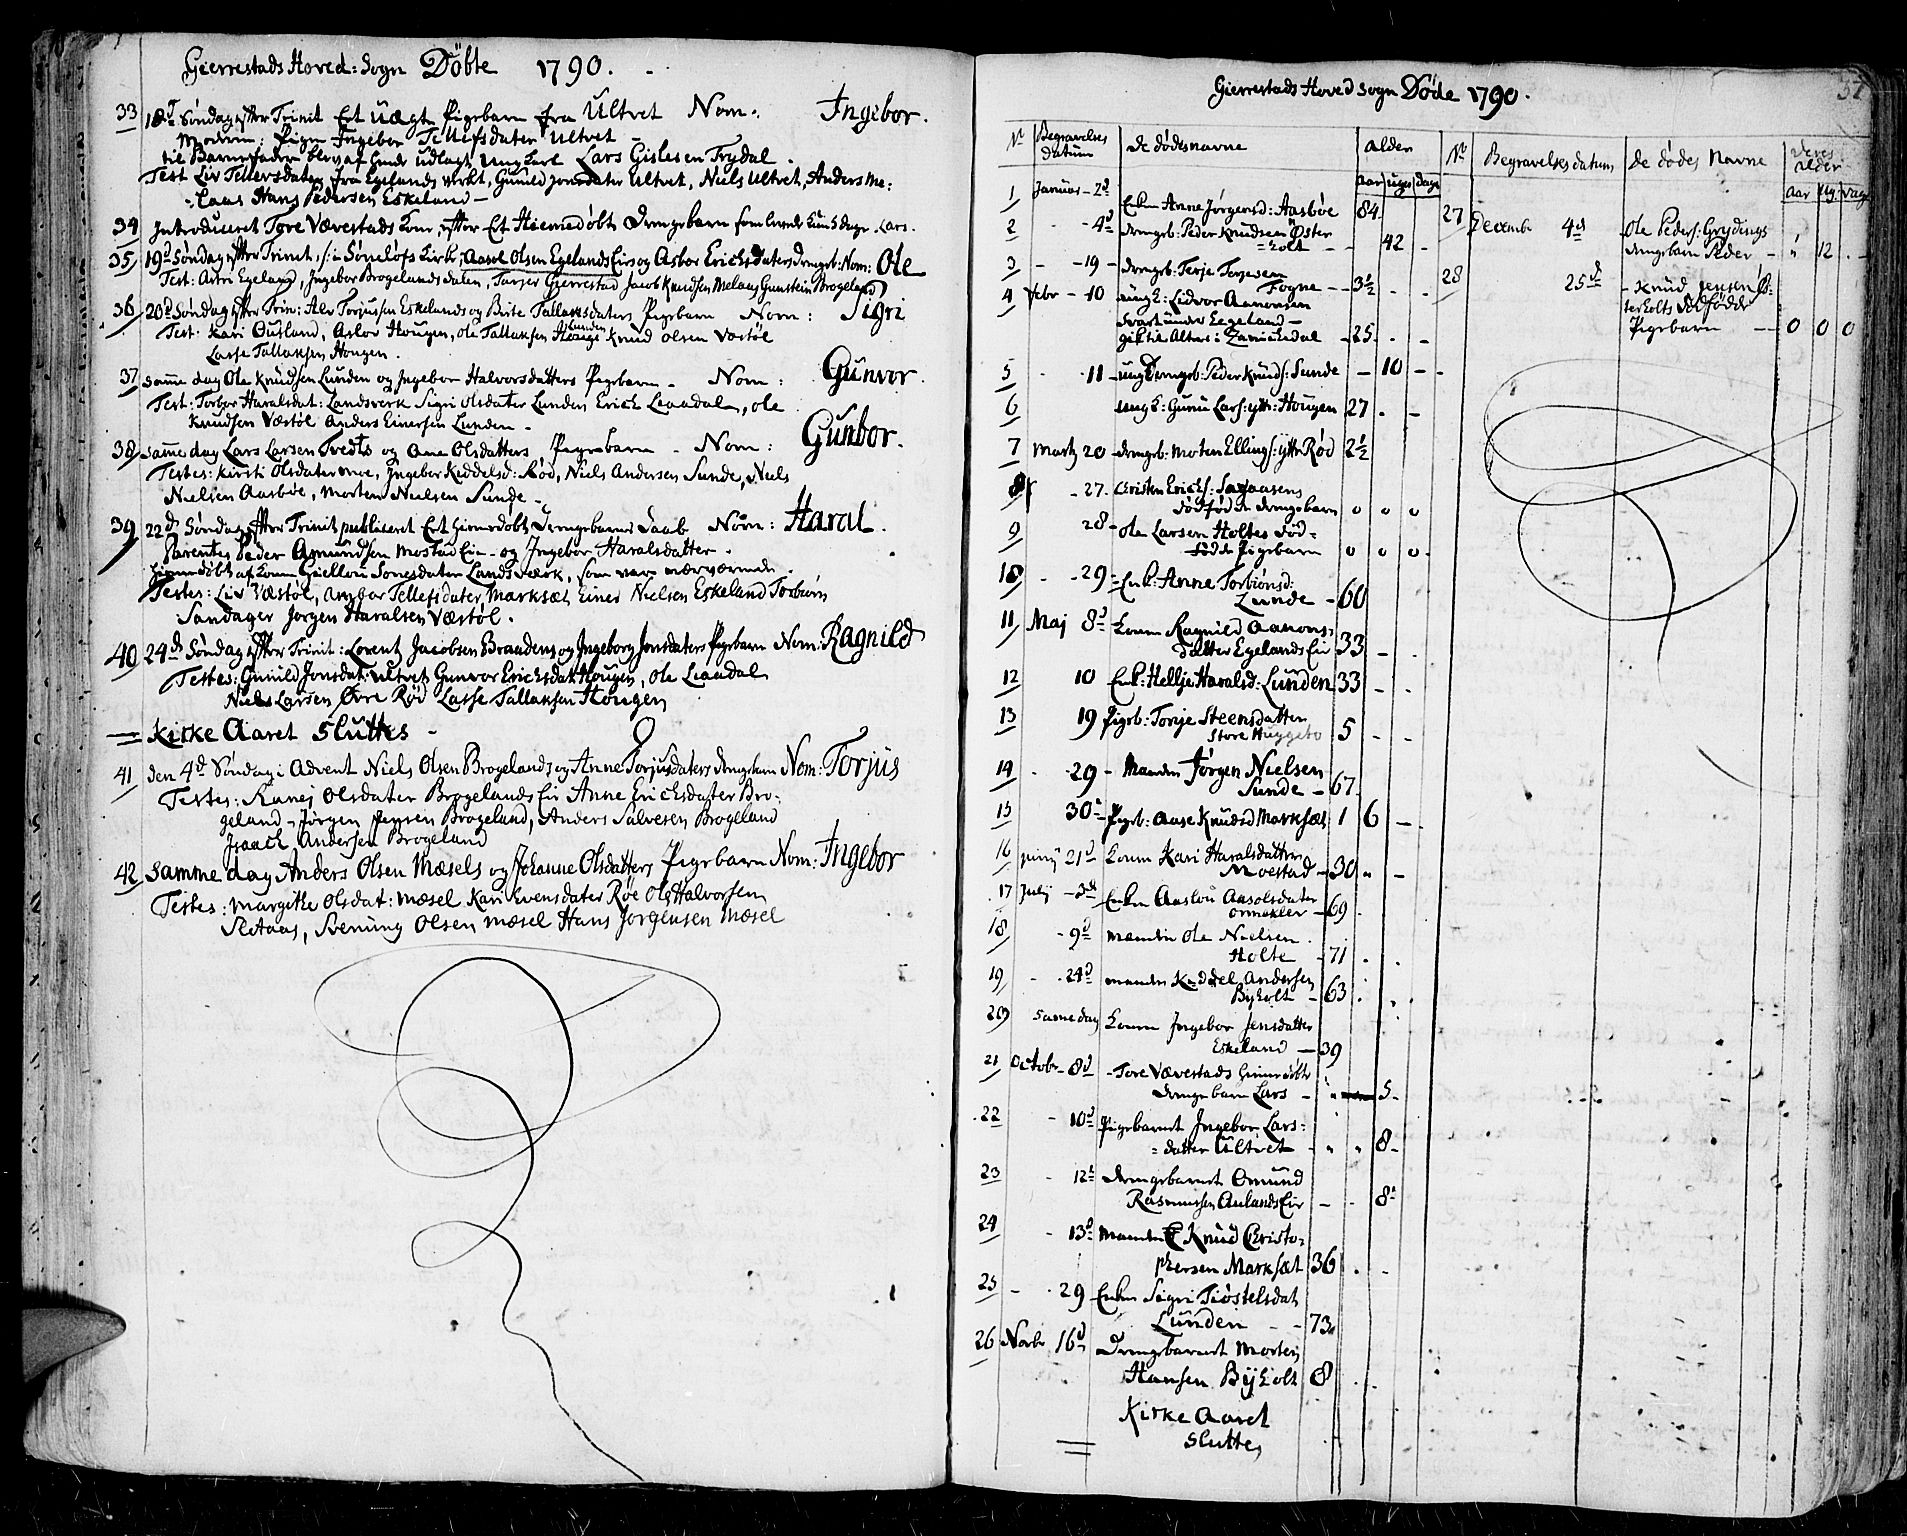 Gierrestads Hoved: Sogn Döbte 1790.
33 18d Søndag efter Trinit Et uægte Pigebarn fra Ultvet Nom: Ingebor.
Moderen: Pigen Ingebor Tellefsdater Ultvet
til Barnefader blev af hende udlagt ungkarl Lars Gislesen Trydal.
Test Liv Tellevsdater fra Egelands verkt, Gunild Jonsdater Ultvet, Niels Ultvet, Anders Me:
Claas Hans Pedersen Eskeland
34 Introduceret Tore Værestads kone, efter Et Hiemedøbt Drengebarn som levede kun 5 dage. Lars.
35 19d Søndag efter Trinit, /: i Søndeløfs Kirk: Aasol Olsen Egelands Eie og Asbor Erichsdaters drengeb: Nom: Ole
Test: Astri Egeland, Ingebor Brogelandsdalen, Tarjer Gierrestad Jacob Knudsen Melaas Gunstein Brogeland
36 20d Søndag efter Trin: Alev Torjussen Eskelands og Birte Tallaksdaters Pigebarn Nom: Sigri
Test: Kari Ousland, Aslov Hougen, Ole Tallaksen Lunden Knud Olsen Væstøl
Lasse Tallaksen Hougen.
37 samme dag Ole Knudsen Lunden og Ingebor Halvorsdatters Pigebarn Nom: Gunvor.
Test: Torbor Haralsdat: Landsverk Sigri Olsdater Lunden Erich Leaadal, Ole
Knudsen Væstøl Anders Einersen Lunden
38 samme dag Lars Larsen Tvedts og Ane Olsdatters Pigebarn Nom: Gunbor.
Testes: Kirsti Olsdater moe, Ingebor Keddelsd: Rød, Niels Andersen Sunde, Niels
Nielsen Aasbøe, Morten Nielsen Sunde
39 22d Søndag efter Trinit publiseret Et hiemedøbt Drengebarns Daab Nom: Haral.
Parentes Peder Amundsen Mostad Eie og Ingebor Haralsdatter.
hiemedøbt af kone Giellou Jonesdater Landsverk, som var nærværende.
Testes: Liv Væstøl, Anbor Tellefsdater Marksæt Einer Nielsen Eskeland Torbiørn
Sandager Jørgen Haralsen Væstøl.
40 24d Søndag efter Trinit: Lorentz Jacobsen Braadens og Ingeborg Jonsdaters Pigebarn Nom: Ragnild
Testes: Gunild Jonsdat: Ultvet Gunvor Erichsdat: Hougen, Ole Leaadal
Niels Larsen Øvre Rød Lasse Tallaksen Hougen
Kirke Aaret Sluttes
41 den 4d Søndag i Advent Niels Olsen Brogelands og Anne Torjusdaters drengebarn Nom: Torjus
Testes: Ranej Olsdater Brogelands Eie Anne Erichsdater Bro:
geland Jørgen Jensen Brogeland, Anders Salvesen Brogeland
Isaach Andersen Brogeland
42 samme dag Anders Olsen Mæsels og Johanne Olsdatters Pigebarn Nom: Ingebor
Testes: Margithe Olsdat: Mæsel Kari Evensdater Røe Ole Halvorsen
Sletaas, Svenung Olsen Mæsel Hans Jørgensen Mæsel
Gierrestads Hoved Sogn Døde 1790.
37
No Begravelses datum De dødes navne Alder
Aar uger dage
1 Januar 2d Enken Anne Jørgensd: Aasbøe 84
2 4d drengeb: Peder Knudsen Øster
holt 42
3 19 drengeb: Terje Terjesen
Fogne 3½
4 Febr 10 ungk: Lidvor Aanonsen
Svart under Eegeland
gik til Alters: Zamichedal 25
5 11 ung Drengeb: Peder Knuds: Sunde 10
6 ungk: Gunu Lars: ytt: Hougen 27
7 Martz 20 drengeb: Morten Ellings: ytt Rød 2½
8 27. Cristen Erichs: Sagaasens
dødfødde drengebarn 0 0 0
9 28 Ole Larsen Holtes død=
fødde Pigebarn 0 0 0
10 29 Enk: Anne Torbiønsd:
Lunde 60
11 Maj 8d Konen Ragnild Aanons
datter Egelands Eie 33
12 10 Enk: Hellje Haralsd: Lunden 33
13 19 Pigeb: Torje Steensdatter
Store Huggeto 5
14 29 Manden Jørgen Nielsen
Sunde 67
15 30 Pigeb: Aase Knudsd Marksæt 1 6
16 Junij 21d Konen Kari Haralsdatter
Moestad 30
17 Julij 3d Enken Aaslou Aasolsdater
Ormekler 69
18 9d Manden Ole Nielsen
Holte 71
19 24d manden Keddel Andersen
Byholt 63
20 samme dag Konen Ingebor Jensdatter
Eskeland 39
21 Octobr 8d Tore Værestads hiemedøbte
drengebarn Lars 5
22 10d Pigebarnet Ingebor Lars=
datter Ultvet 8
23 12 drengebarnet Omund
Rasmussen Aulands Eie 8
24 13d Manden Knud Christo=
phersen Marksæt 36
25 29 Enken Sigri Tiøstelsdat
Lunden 73
26 Novbr 16d Drengebarnet Morten
Hansen Byholt 8
Kirke Aaret
Slutter
No Begravelses datum De dødes Navne Deres Alder
Aar Ug. Dage
27 Decembr 4d Ole Peders: Grydings
drengebarn Peder 12
28 25d Knud Jensen Øs=
terholts dødfødde
Pigebarn 0 0 0